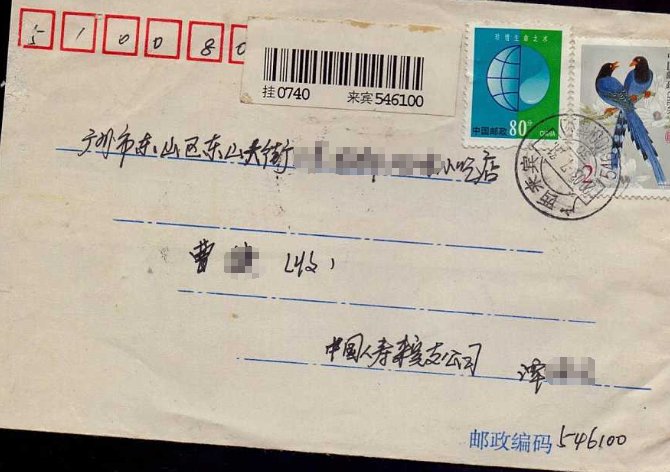 510080
挂0740 来宾546100
珍惜生命之水
中国邮政 80分 CHINA
2
广西来宾
广州市东山区东山大街 小吃店
曹 (收)
中国人寿来宾支公司 谭
邮政编码 546100